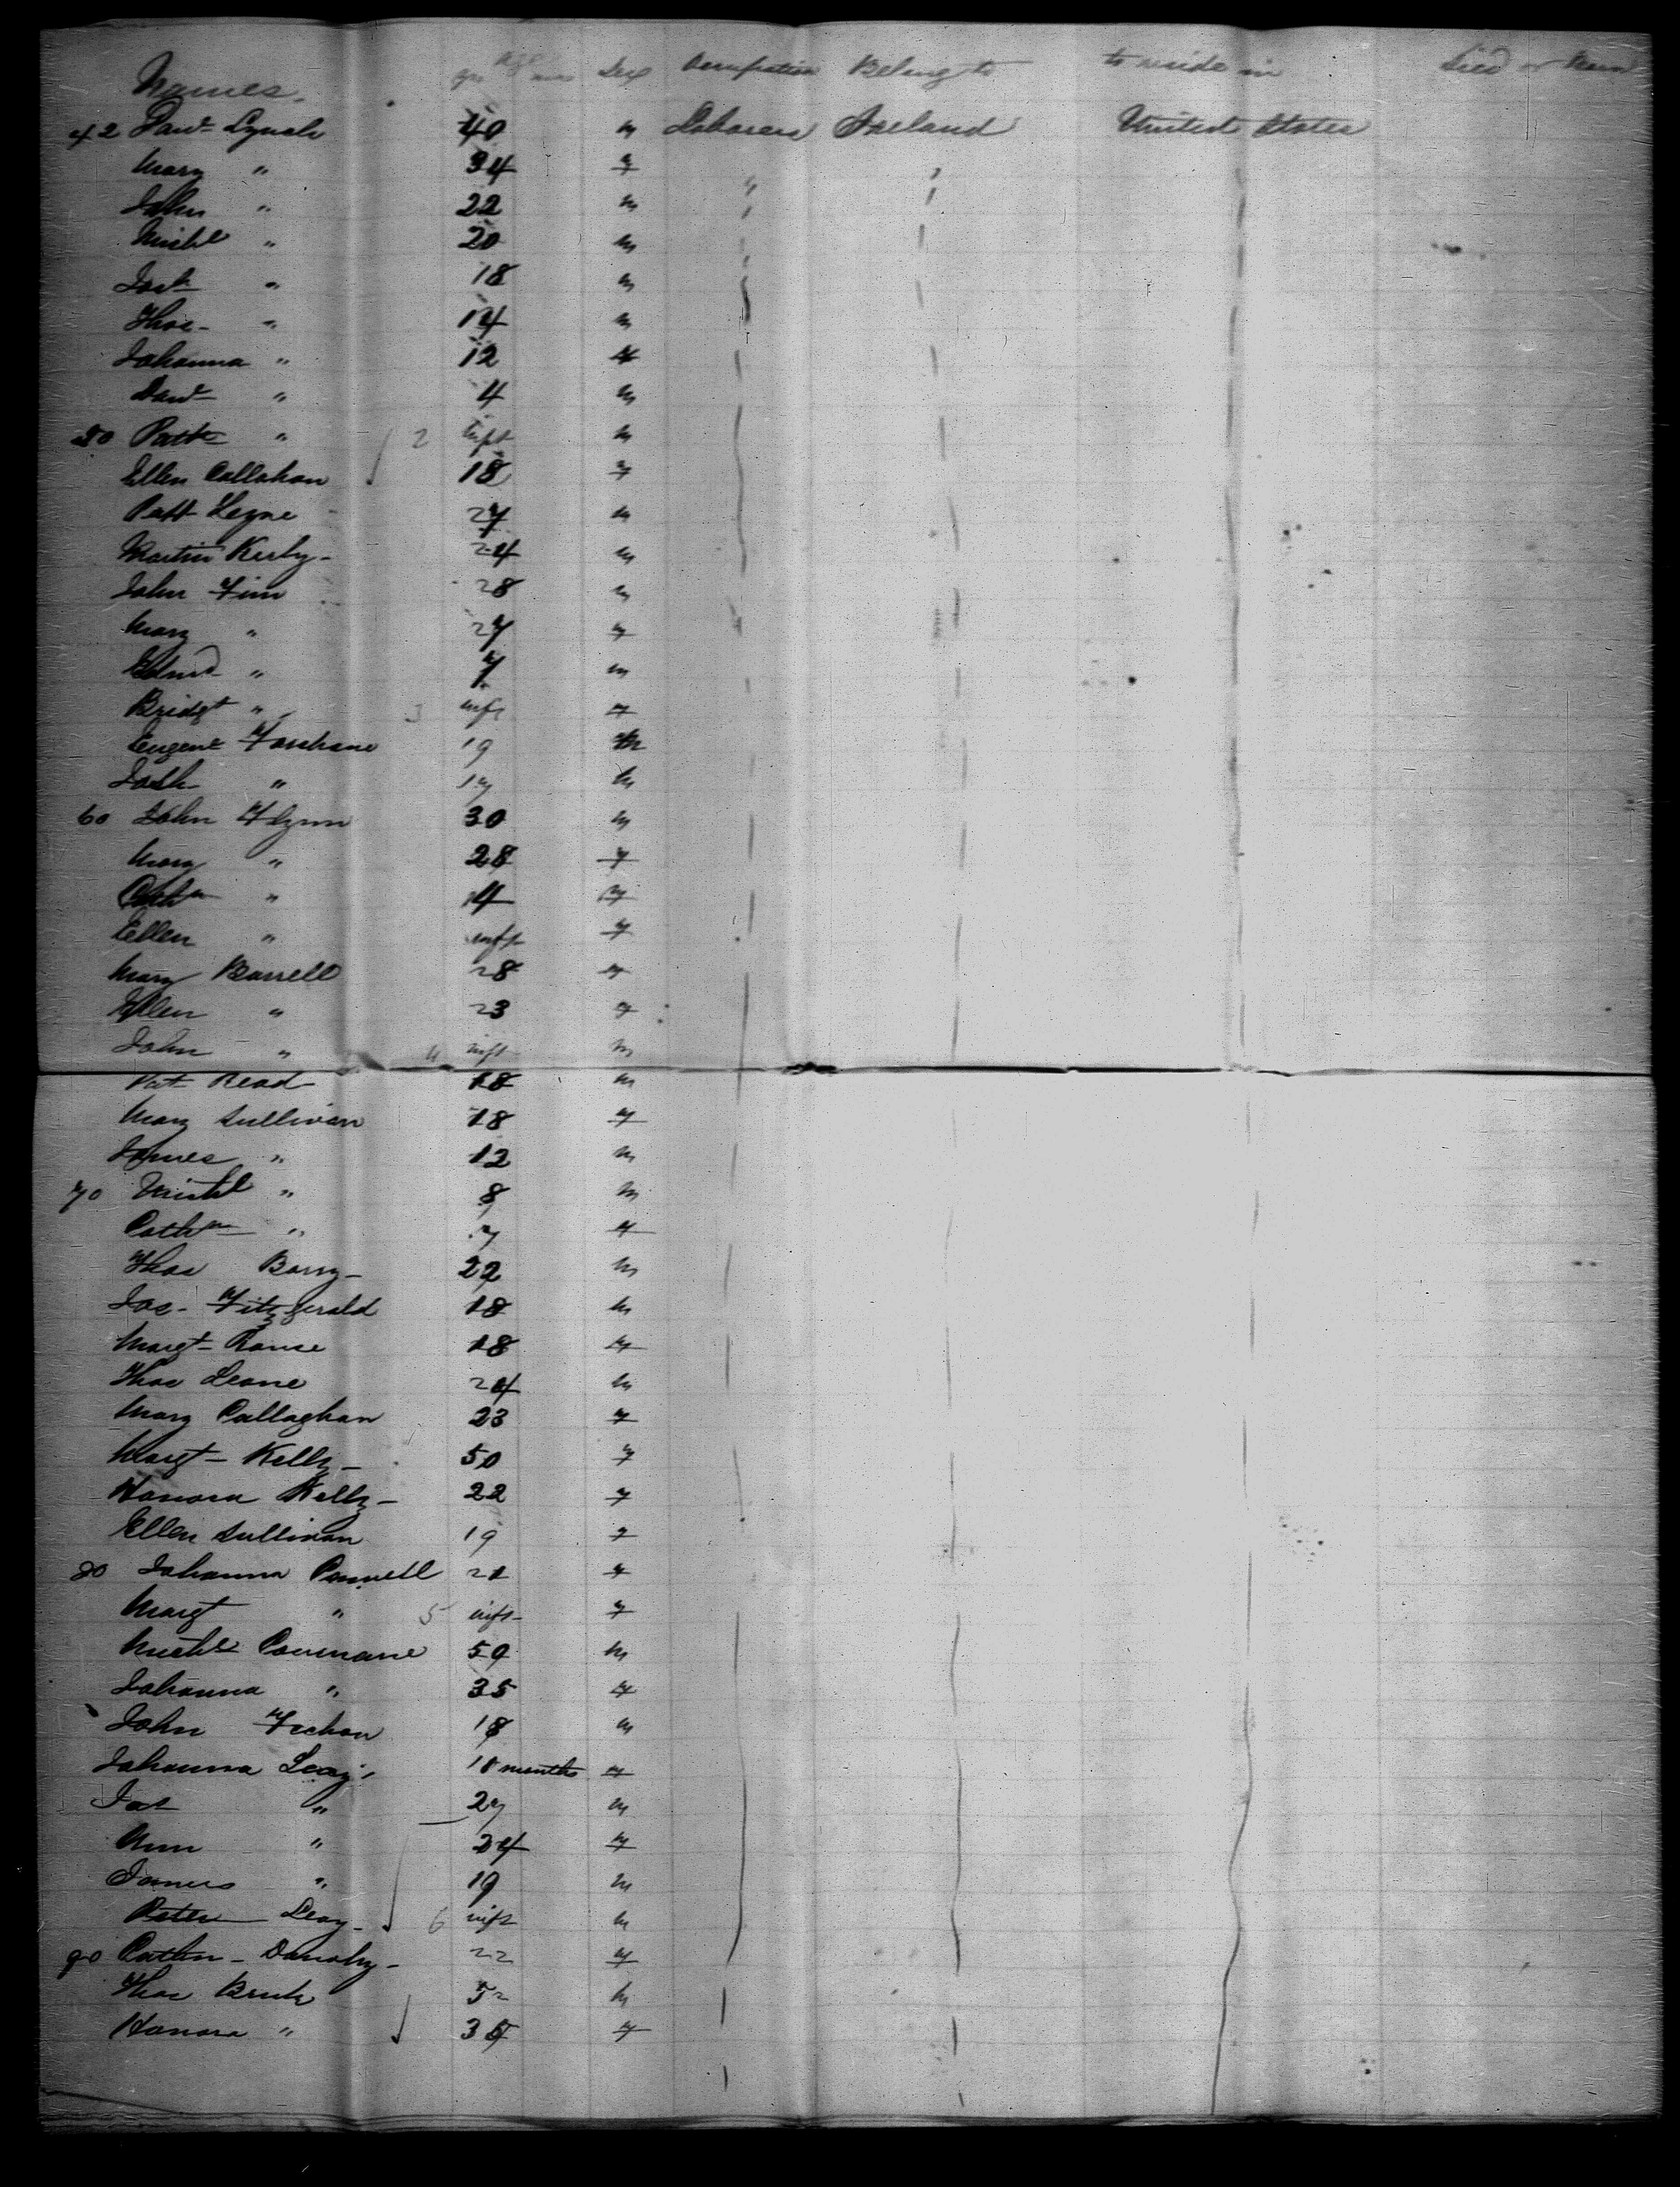 Names. Age yrs mos Sex Occupation Belong to to reside in Died or Born
42 Davd Lynch 40 m Laborers Ireland United States
Mary " 34 f
John " 22 m
Michl " 20 m
" 18 m
Thos- " 14 m
Johanna " 12 f
Davd " 4 m
50 Patk " 2 inft m
Ellen Callahan 18 f
Patt Leyne 27 m
Martin Kerby- 24 m
John Finn 28 m
Mary " 27 f
Edmd " 7 m
Bridgt " 3 inft f
Eugene 19 m
" 17 m
60 John Flynn 30 m
Mary " 28 f
Cathn " 4 f
Ellen " inft f
Mary Barrell 28 f
Ellen " 23 f
John " 4 inft m
Pat Read- 18 m
Mary Sullivan 18 f
James " 12 m
70 Michl " 8 m
Cathn " 7 f
Thos Barry- 22 m
Jas- Fitzgerald 18 m
Margt- 18 f
Thos Leane 24 m
Mary Callaghan 23 f
Margt- Kelly- 50 f
Hanora Kelly- 22 f
Ellen Sullivan 19 f
80 Johanna 21 f
Margt " 5 inft- f
Michl 50 m
Johanna " 35 f
John 18 m
Johanna Leay 18 months f
Jas " 27 m
Ann " 24 f
James " 19 m
Peter Leay- 6 inft m
90 Cathn- Danahy- 22 f
Thos 5 m
Hanora " 35 f